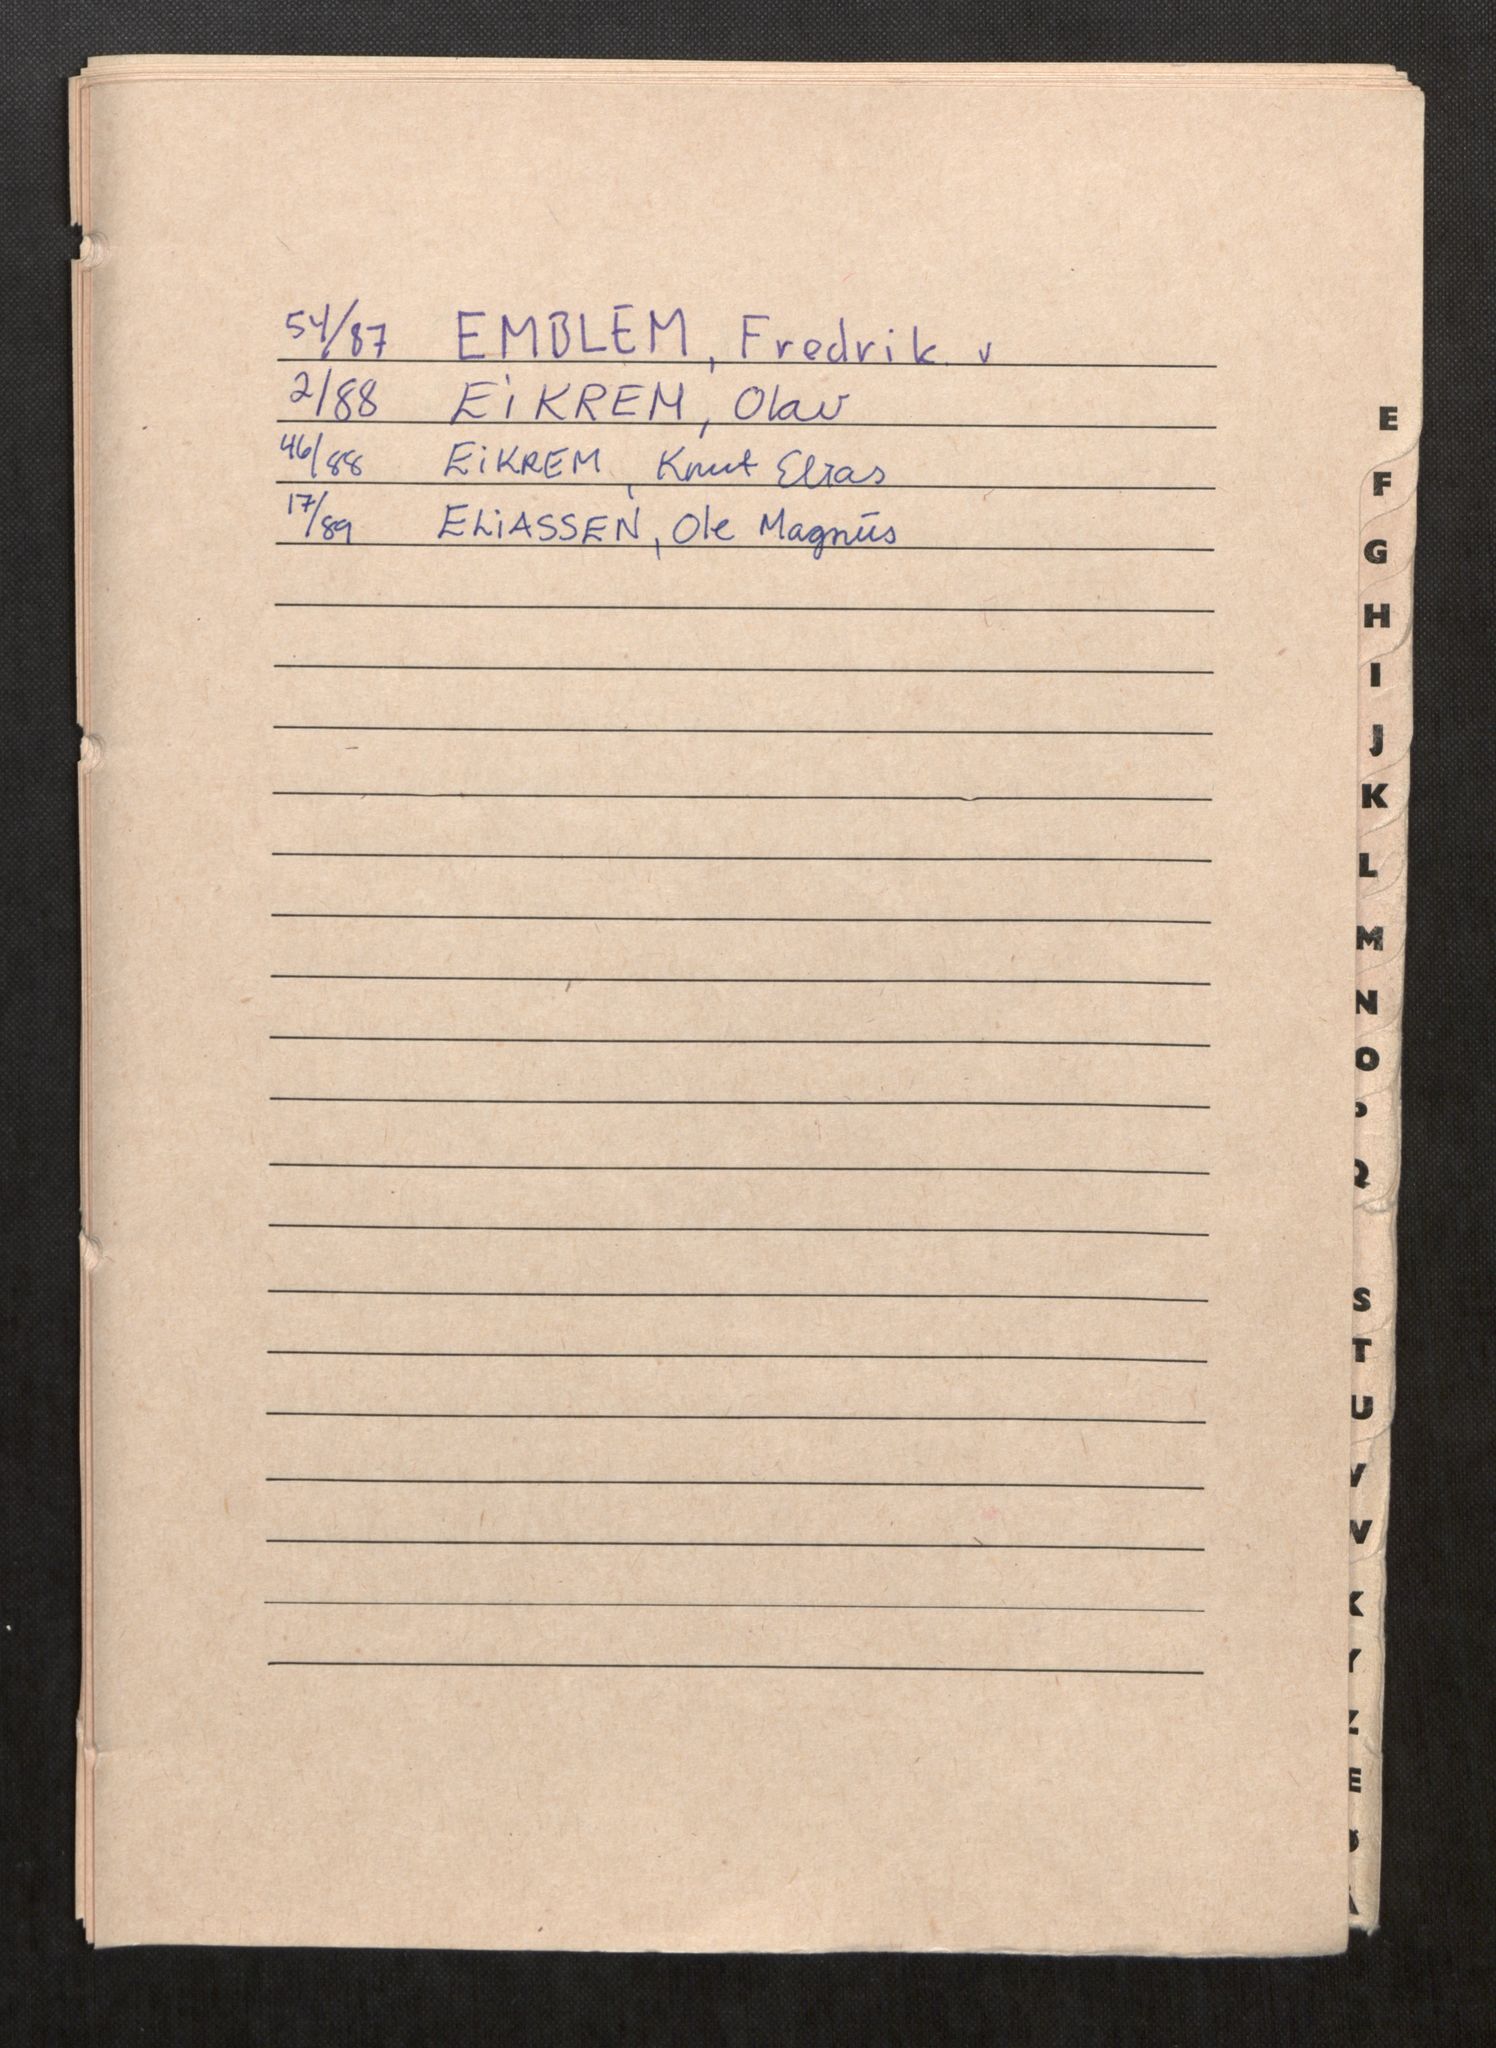 54/87 EMBLEM, Fredrik v
2/88 EiKREM, Olav
46/88 EiKREM, Knut Elias
17/89 ELiASSEN, Ole Magnus
E
F
G
H
I
J
K
L
M
N
O
P
Q
S
T
U
V
W
X
Y
Z
Æ
Ø
Å